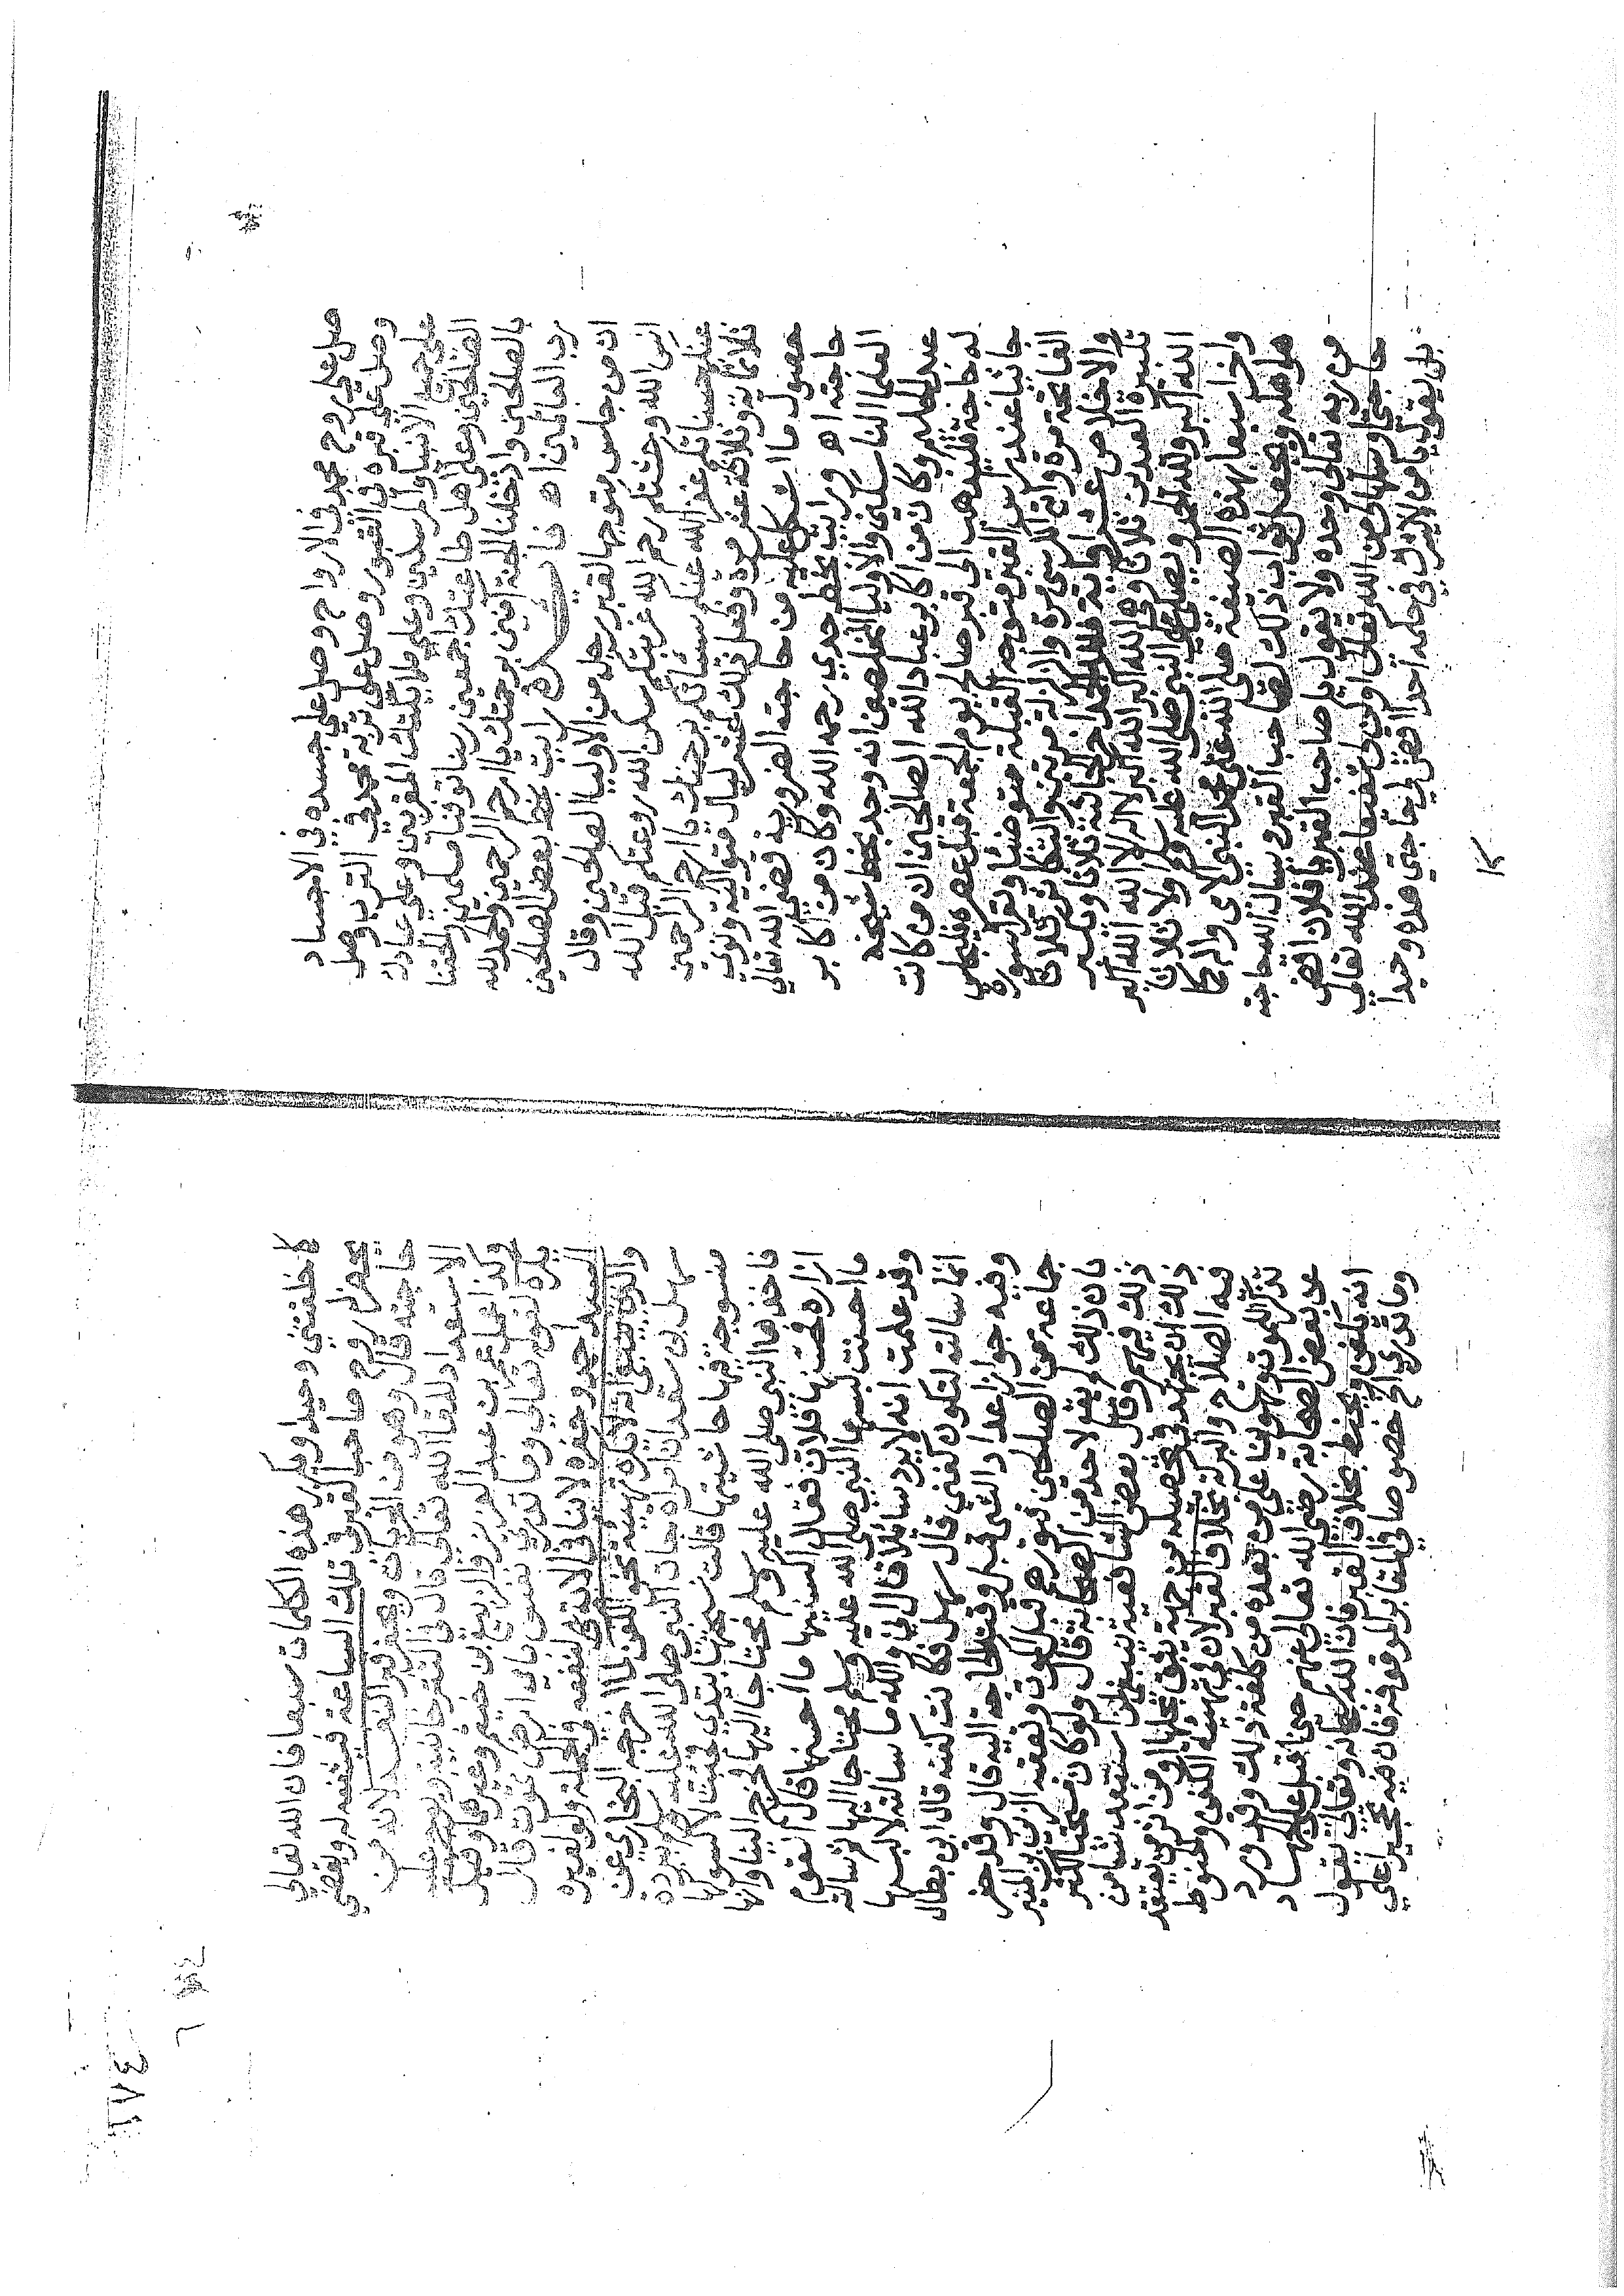 صل علي روح محمد في الارواح وصل علي جسده في الاجساد
وصل علي قبره في القبور وصل على تربة محمد في الترب وصل
علي جميع الانبيا والمرسلين وعلي ملايكتك المقربين وعلي عبادك
الصالحين وعلي اهل طاعتك اجمعين ربنا توفنا مسلمين والحقنا
بالصالحين وادخلنا الجنة امنين برحمتك يا ارحم الراحمين والحمد لله
رب العالمين اه فايدة رايت بخط بعض الصلحين
ان من جلس متوجها لقبر رجل من الاوليا الصالحين وقال
انس الله وحشتكم رحم الله غربتكم سكن الله روعتكم قبل الله
حسناتكم غفر الله سيئاتكم برحمتك يا ارحم الراحمين
ثلاثماية وثلاثة عشر مرة وفعل ذلك عشر ليال متوالية ونوي
حصول ما اشكل عليه من حاجته الضرورية قضي الله تعالي
حاجته اه ورايت بخط جدي رحمه الله وكان من اكابر
العلما الناسكين والاوليا المخلصين انه وجد بخط شيخه
عبد الحليم وكان من اكابر عباد الله الصالحين ان من كانت
له حاجة فليذهب الي قبر صالح يوم الجمعة قبل عصره فليجلس
جاثيا عند راس القبر متوجه القبلة متوضئا وتقرا سورة
الفاتحة مرة واية الكرسي مرة والزلزلة مرتين والتكاثر ثلاثا
والاخلاص عشرا وثلاثا ويكبر
تكبيرة العيدين ثلاثا وهي الله اكبر الله اكبر لا اله الا الله الله اكبر
الله اكبر ولله الحمد ويصلي علي النبي صلي الله عليه وسلم اولا ثلاثا
واخرا سبعا بهذه الصيغة صلي الله علي محمد النبي الامي واله
هو اهله ويجعل ثواب ذلك لصاحب القبر ويسال الله حاجته
من ربه تعالي وحده ولا يقول يا صاحب القبر يا فلان اقض
حاجتي او سلها لي من الله تعالي او كن لي شفيعا عند الله تعالي
بل يقول يا من لا يشرك في حكمه احدا اقض لي حاجتي هذه وحيدا
كما خلقتني وحيدا ويكرر هذه الكلمات سبعا فان الله تعالي
يحضر روح صاحب القبر في تلك الساعة فيشفعه له ويقضي
حاجته قال وهو من المجربات وحفر قبر لنفسه لانه من
الاستعداد للقا الله تعالي قال في التترخانية ويوجر عليه
وكذا عمل عمر بن عبد العزيز والربيع بن خثيم وغيرهما وقيل
يكره لقوله تعالي وما تدري نفس باي ارض تموت قال
السيد احمد وحفره لا ينافي الاية لنفعه في الجملة ولو لغيره
والذي ينبغي انه لا يكره تهيية نحو الكفن لما اخرجه البخاري عن
سهل بن سعد ان امراة جات النبي صلي الله عليه وسلم ببردة
منسوجة فيها حاشيتها قالت نسجتها بيدي فجئت لاكسوكها
فاخذها النبي صلي الله عليه وسلم محتاجا اليها فخرج الينا وانها
ازاره فحسنها فلان فقال اكسنيها ما احسنها قال القوم
ما احسنت لبسها النبي صلي الله عليه وسلم محتاجا اليها ثم سالته
وقد علمت انه لا يرد سائلا قال اني والله ما سالته لالبسها
انما سالته لتكون كفني قال سهل فكانت كفنه قال ابن بطال
وفيه جواز اعداد الشي قبل وقت الحاجة اليه قال وقد حفر
جماعة من الصالحين قبورهم قبل الموت وتعقبه الزين بن المنير
بان ذلك لم يقع لاحد من الصحابة قال ولو كان مستحبا لكثر
ذلك فيهم وقال بعض الشافعية ينبغي لمن استعد شيا من
ذلك ان يجتهد في تحصيله من جهة يثق بحلها او من اثر من يعتقد
فيه الصلاح والبركة بخلاف القبر لان في تهيئة الكفن والحنوط
تذكر للموت وتهوينا علي من بعده من كلفة ذلك وقد ورد
عن بعض الصحابة رضي الله تعالي عنهم حين اقبل علي الجهاد
انه تكفن وتحنط بخلاف القبر فان الله سبحانه وتعالي يقول
وما تدري الخ خصوصا في المقابر الموقوفة فان فيه تحجير علي
١٧٤